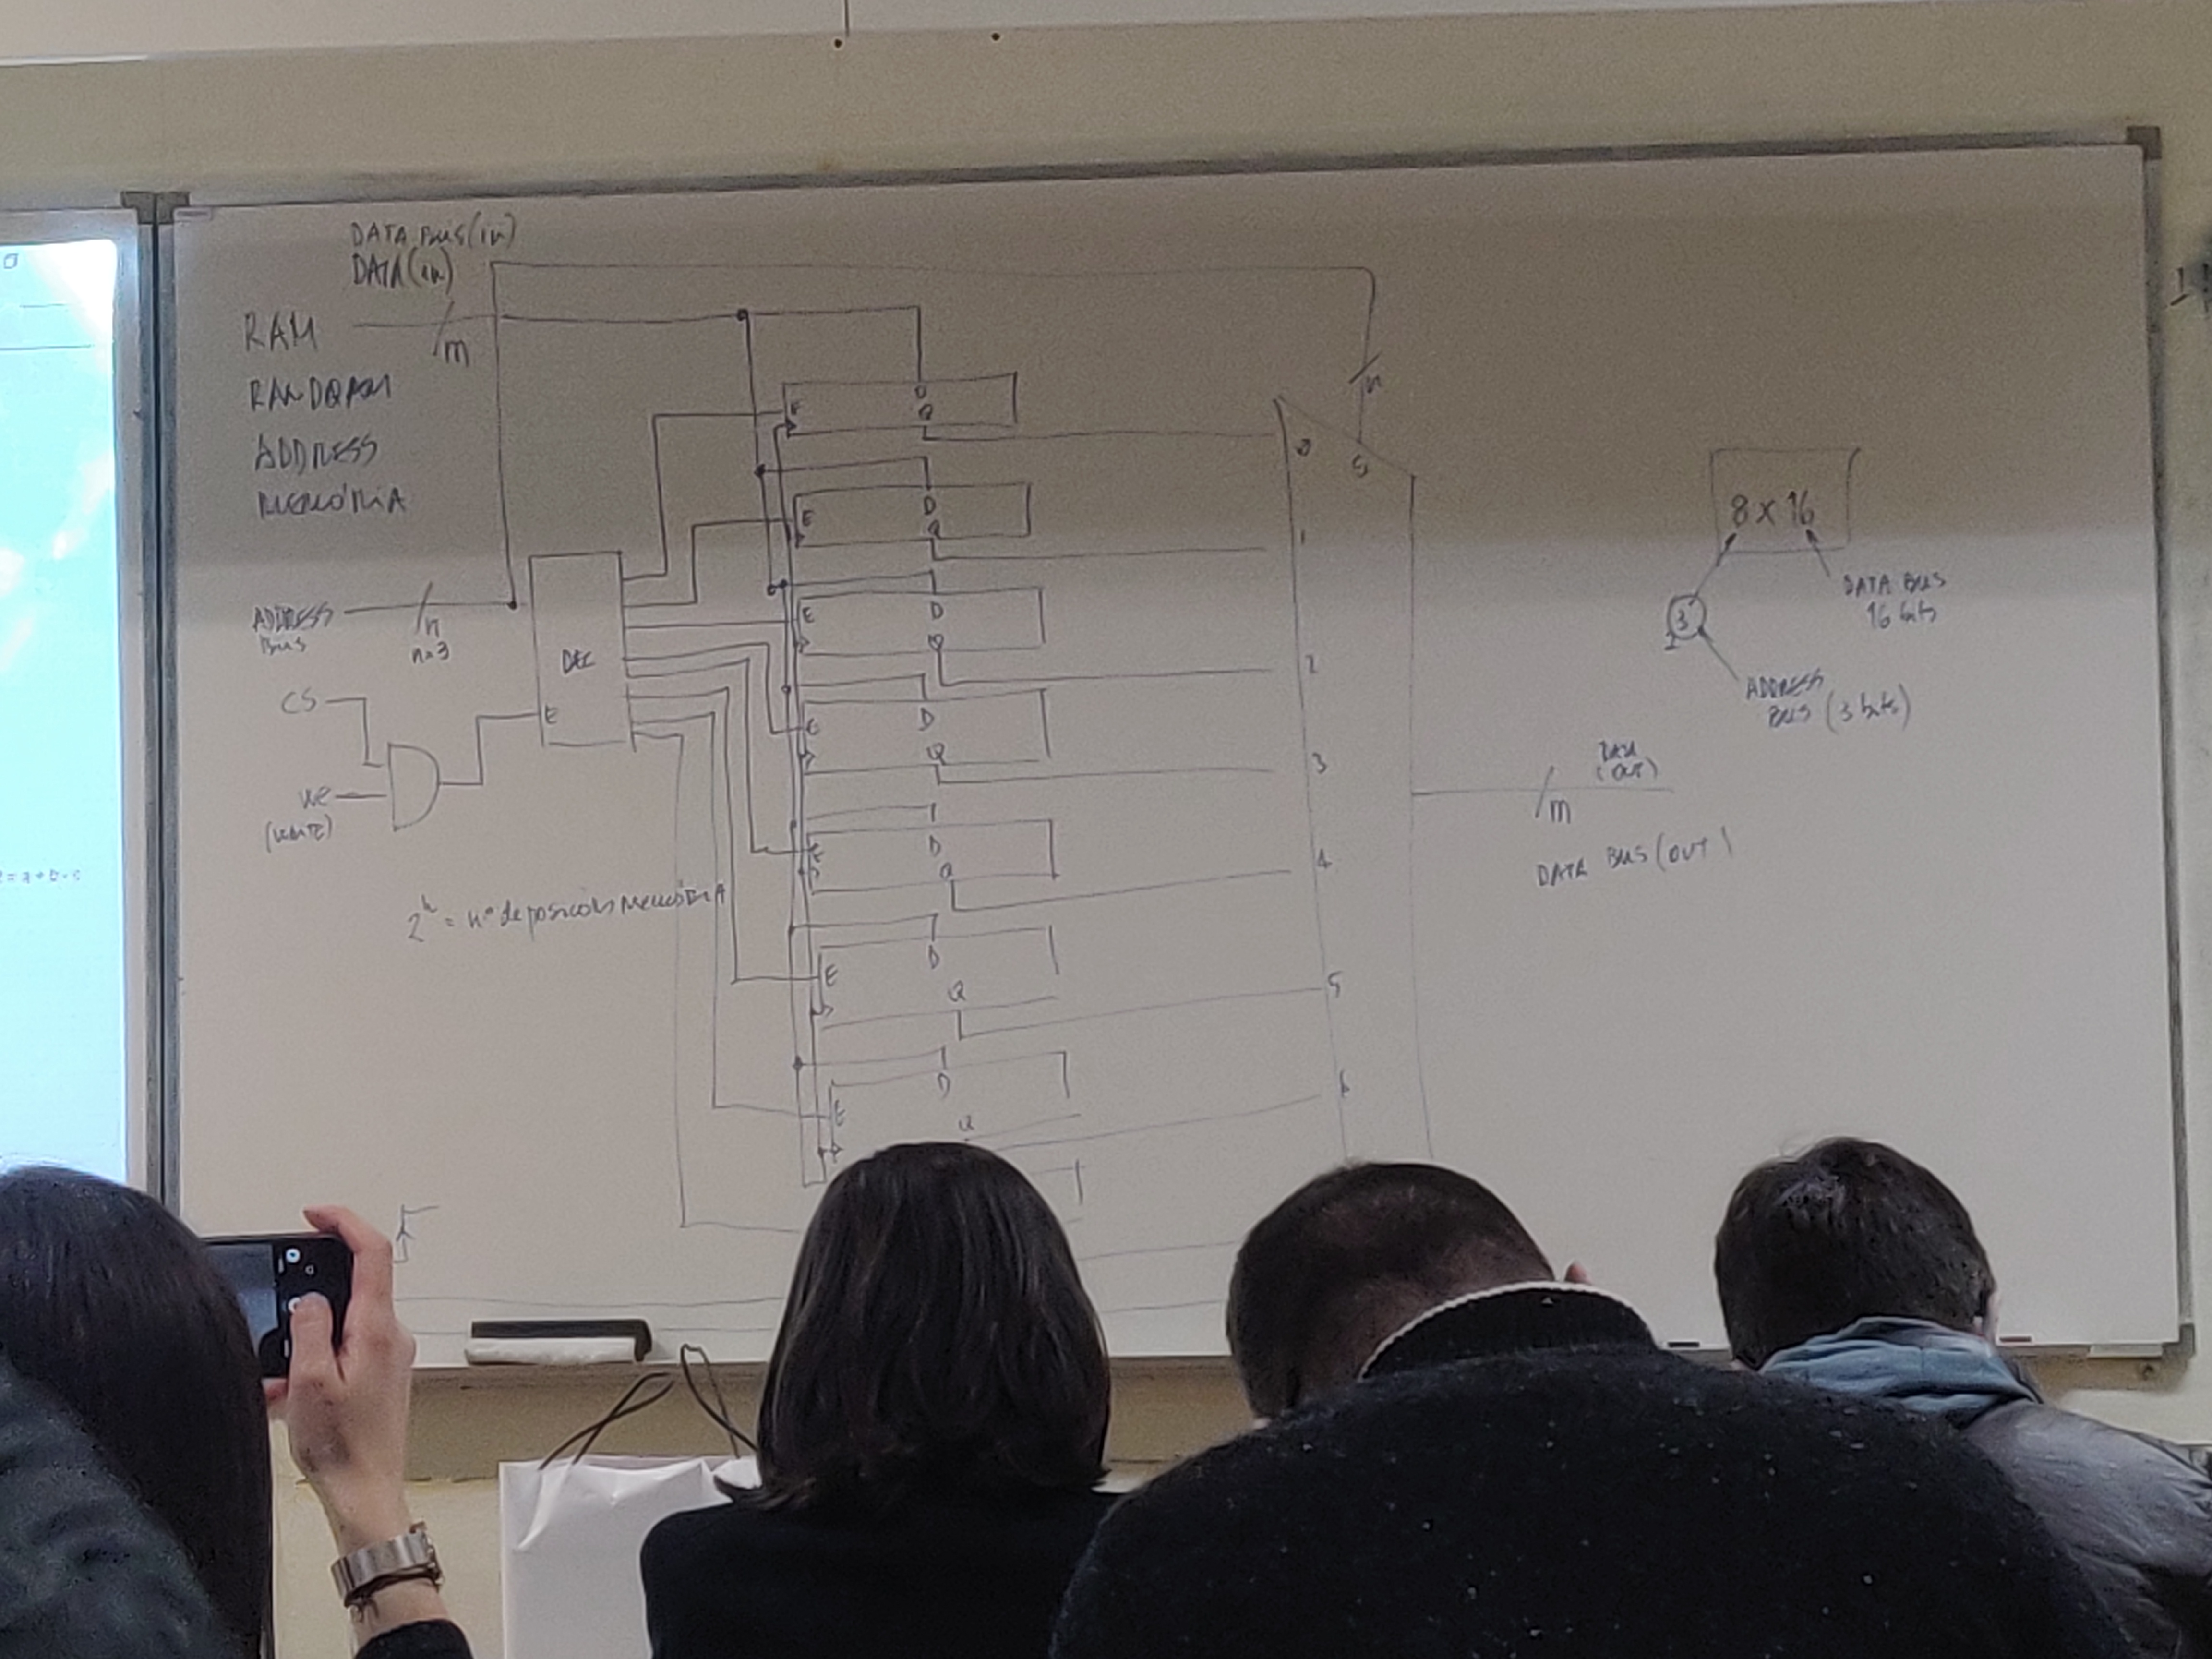 DATA BUS (IN)
DATA (IN)
RAM
m
RANDOAM
ADDRESS
MEMÓRIA
ADDRESS
BUS
n
n=3
DEC
E
CS
WE
(WRITE)
2^n = nº de posições MEMÓRIA
E
D
Q
E
D
Q
E
D
Q
E
D
Q
E
D
Q
E
D
Q
E
D
Q
n
S
0
1
2
3
4
5
6
DATA
(OUT)
m
DATA BUS (OUT)
8 x 16
2^3
DATA BUS
16 bits
ADDRESS
BUS (3 bits)